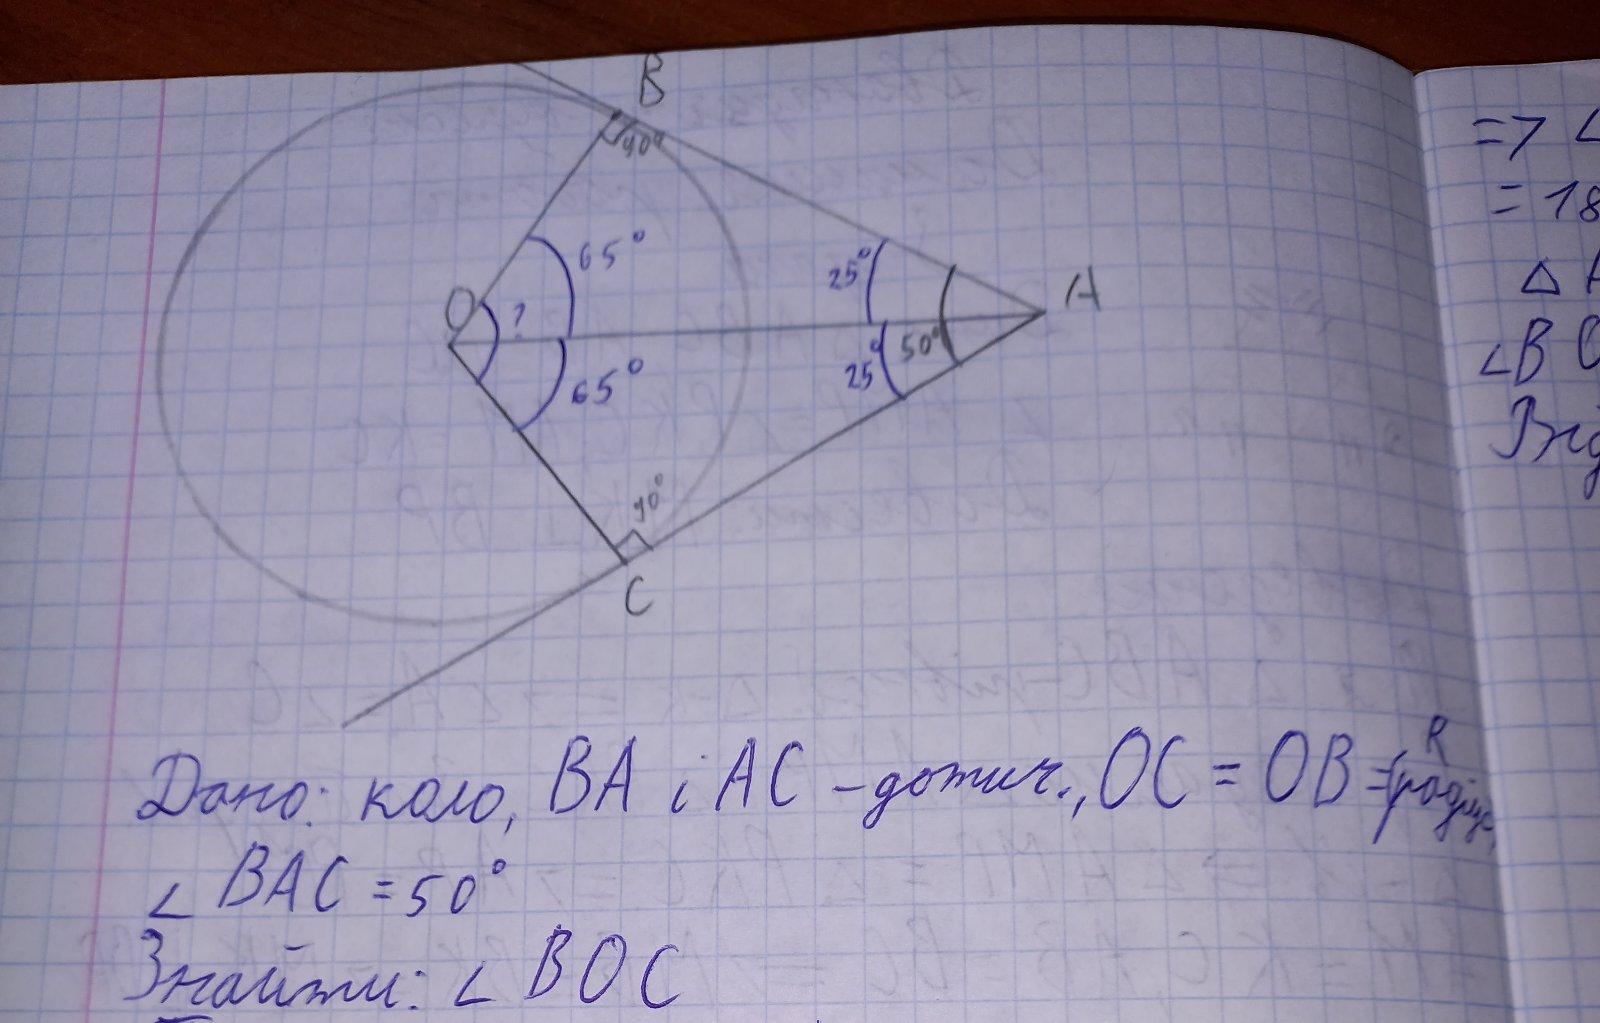 B
90°
65°
25°
O
?
A
50°
65°
25°
90°
C
Дано: коло, BA і AC - дотич., OC = OB = R
(радіус,
∠ BAC = 50°
Знайти: ∠ BOC
=> ∠
= 18
△ A
∠B O
Від